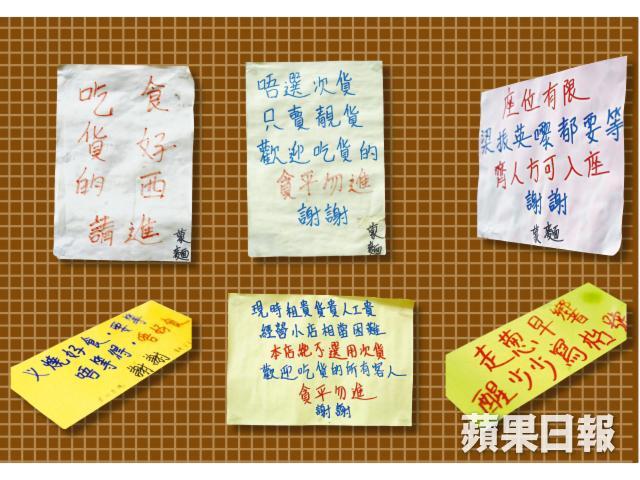 食好西
吃貨的
請進
唔選次貨
只賣靚貨
歡迎吃貨的
貪平勿進
謝謝
座位有限
梁振英嚟都要等
齊人方可入座
謝謝
叉燒好食,要等
唔等得,
謝謝
現時租貴貨貴人工貴
經營小店相當困難
本店絕不選用次貨
歡迎吃貨的所有客人
貪平勿進
謝謝
走蔥早響
醒少少寫
蘋果日報